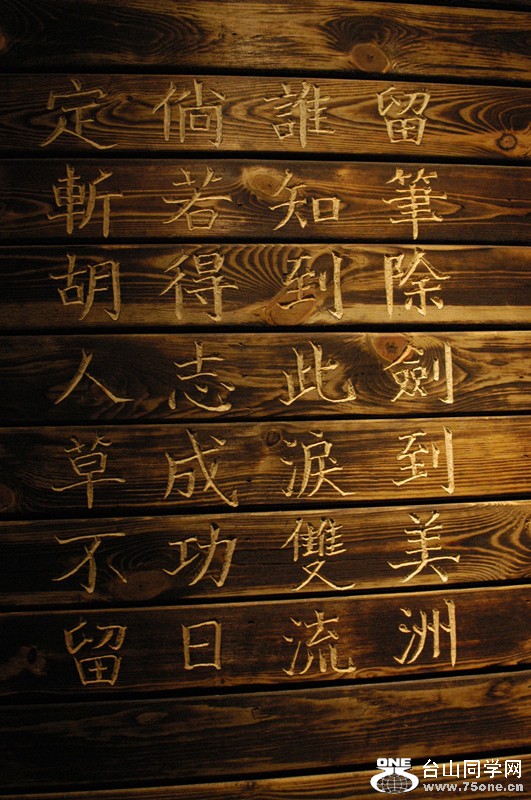 留筆除劍到美洲
誰知到此淚雙流
倘若得志成功日
定斬胡人草不留
ONE
台山同学网
www.75one.cn